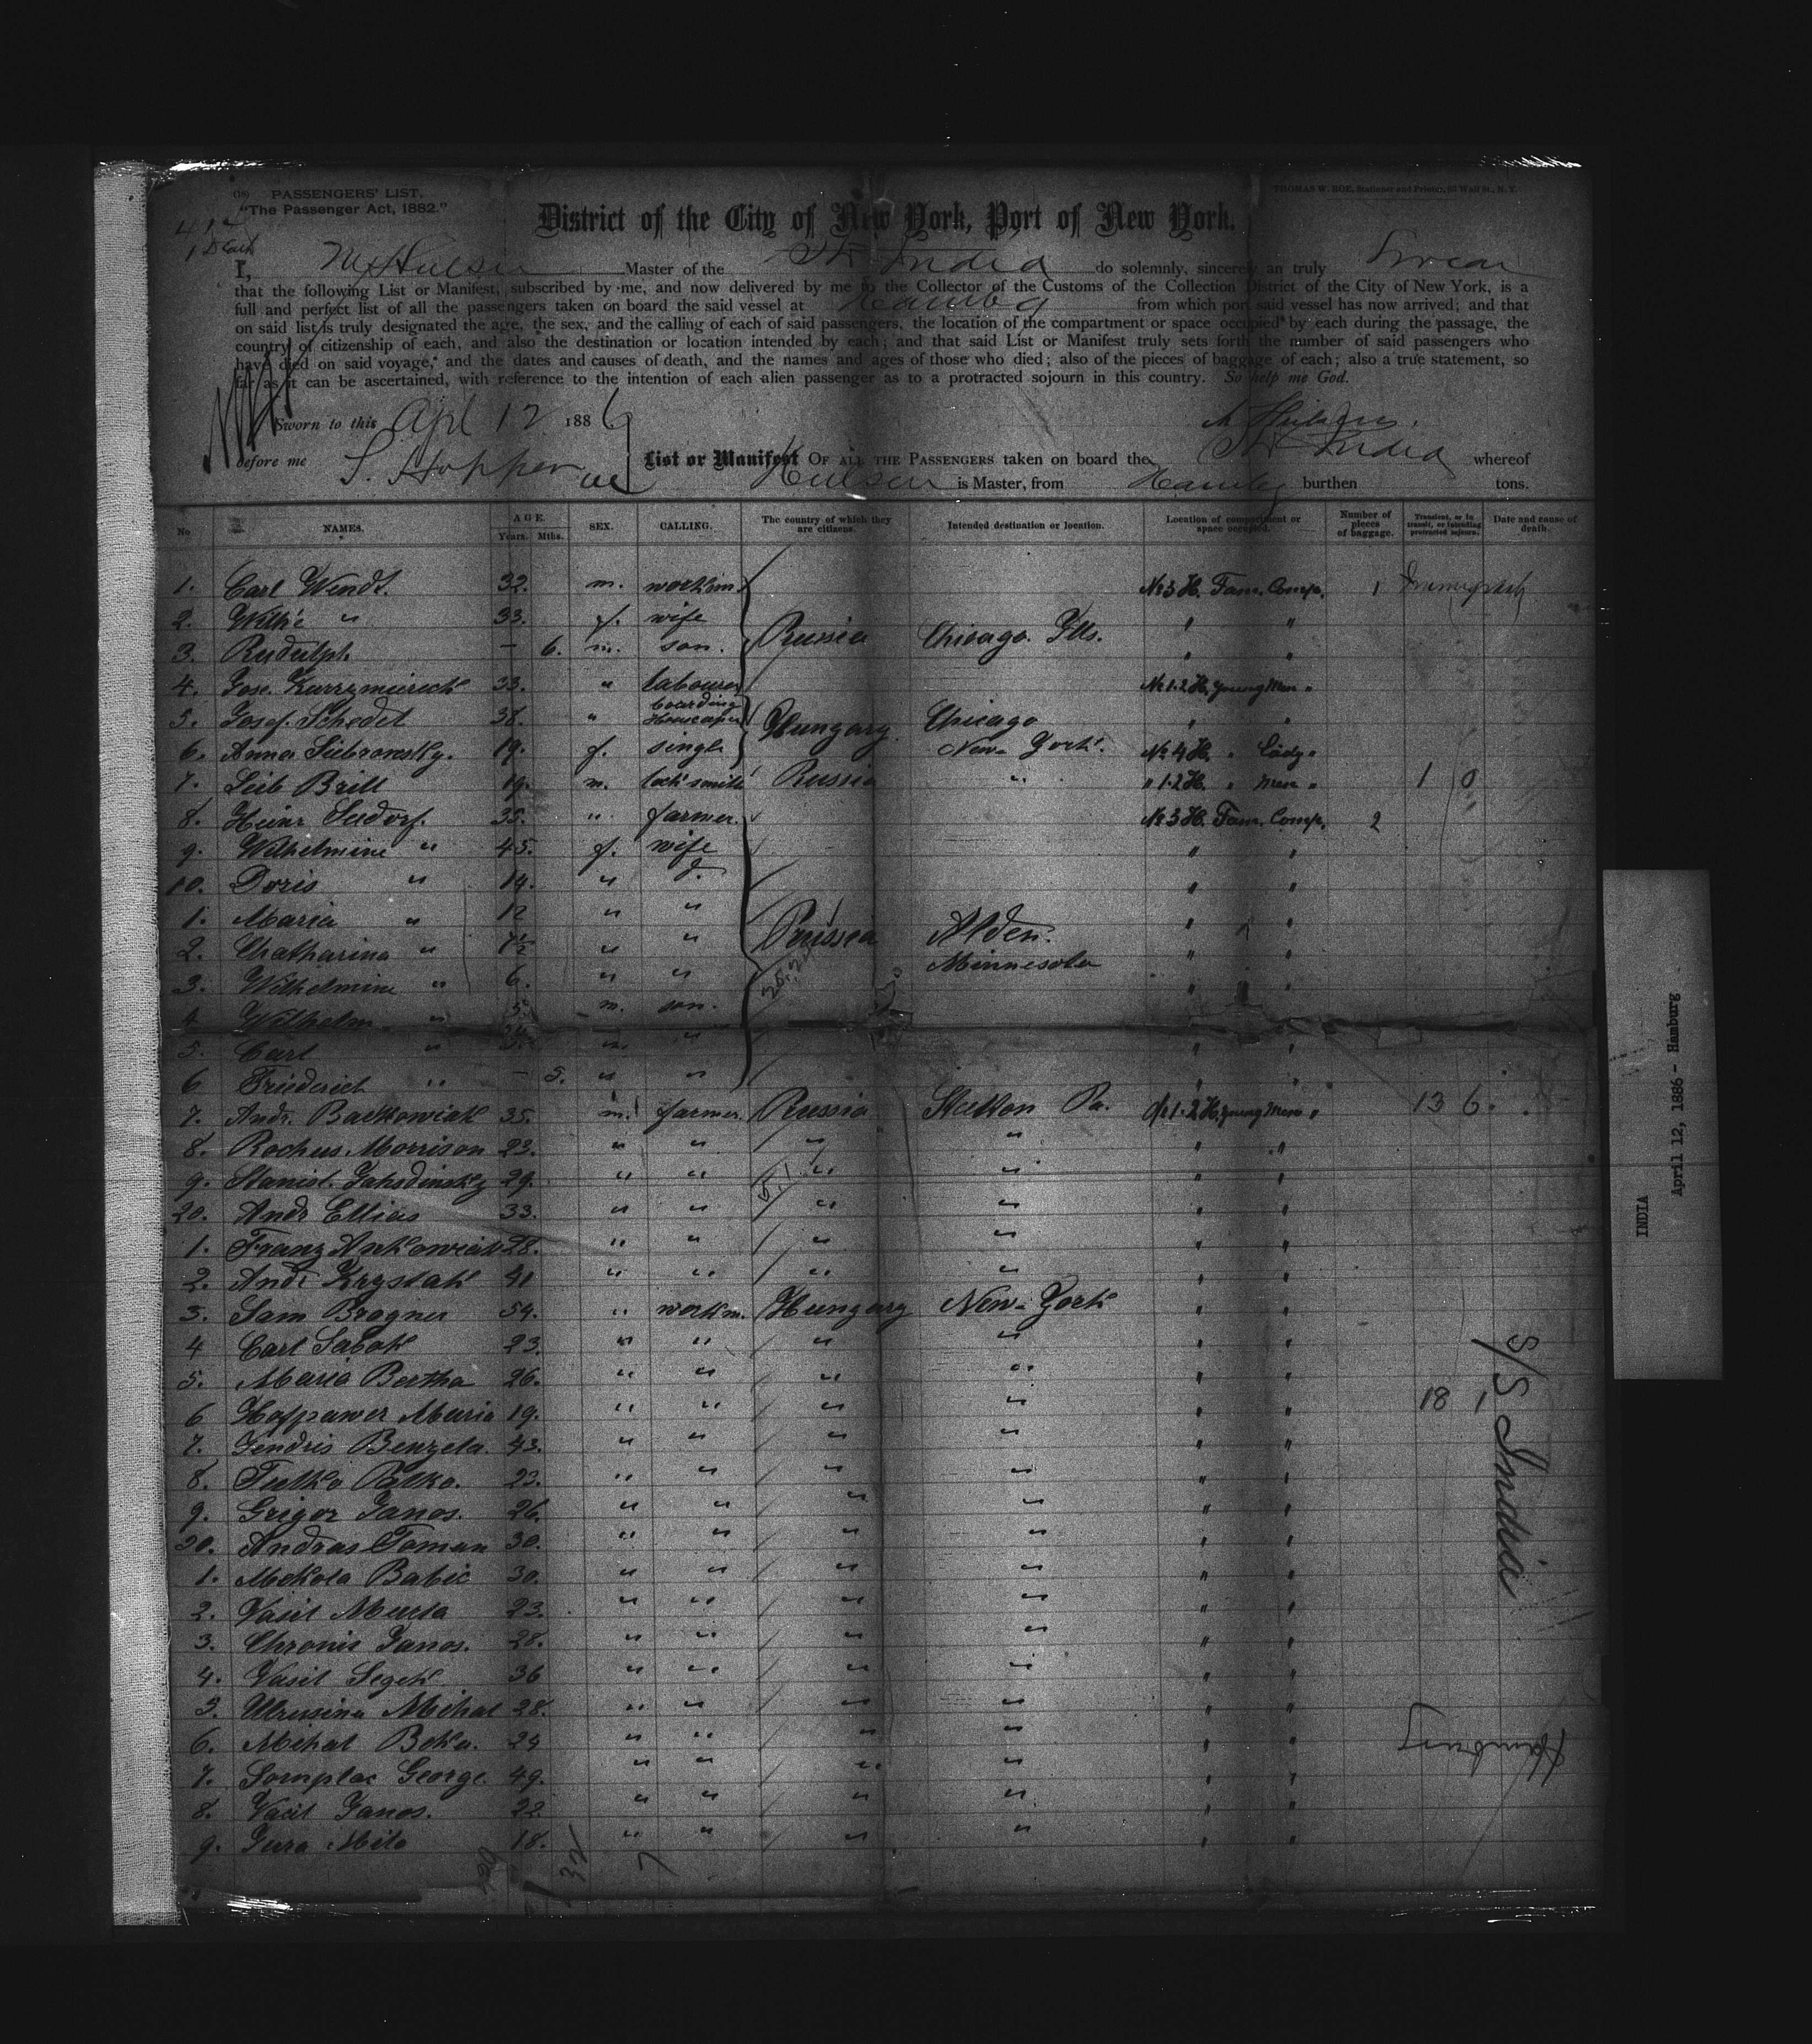 (18) PASSENGERS' LIST.
"The Passenger Act, 1882."
THOMAS W. ROE, Stationer and Printer, 95 Wall St., N. Y.
1 Death
District of the City of New York, Port of New York.
I, M Hulsen Master of the Str India do solemnly, sincerely an truly Swear
that the following List or Manifest, subscribed by me, and now delivered by me to the Collector of the Customs of the Collection District of the City of New York, is a
full and perfect list of all the passengers taken on board the said vessel at Hambg from which port said vessel has now arrived; and that
on said list is truly designated the age, the sex, and the calling of each of said passengers, the location of the compartment or space occupied by each during the passage, the
country of citizenship of each, and also the destination or location intended by each; and that said List or Manifest truly sets forth the number of said passengers who
have died on said voyage, and the dates and causes of death, and the names and ages of those who died; also of the pieces of baggage of each; also a true statement, so
far as it can be ascertained, with reference to the intention of each alien passenger as to a protracted sojourn in this country. So help me God.
Sworn to this Apl 12 1886
before me S. Hopper
List or Manifest OF ALL THE PASSENGERS taken on board the Str India whereof
Hulsen is Master, from Hambg burthen tons.
No NAMES. AGE. Years. Mths. SEX. CALLING. The country of which they are citizens. Intended destination or location. Location of compartment or space occupied. Number of pieces of baggage. Transient, or in transit, or intending protracted sojourn. Date and cause of death.
1. Carl Wendt. 32. m. workm. No 3 H. Fam. Comp. 1
2. Wilh'e " 33. f. wife " "
3. Rudulph — 6. m. son. Russia Chicago Ills. " "
4. Jose. 33. " labourer No 1.2 H. young Men "
5. Josef. Schedel 38. " boarding Hungary Chicago " "
6. Anna 19. f. single New-York. No 4 H. " Lady "
7. Leib Brill 19. m. lock smith Russia " " 1.2 H. " Men " 1 0
8. Heinr. Sudorf. 35. " farmer. No 3 H. Fam. Comp. 2
9. Wilhelmine " 45. f. wife " "
10. Doris " 14. " d. " "
1. Maria " 12 " " Prussia Alden. " "
2. Chatharina " 7½ " " Minnesota " "
3. Wilhelmine " 6. " " " "
4 Wilhelm. " 5. m. son.
5. Carl " " " "
6 Friederich " — 5. " " " "
7. Andr. Backowiak 35. m. farmer. Russia Pa. No 1.2 H. young Men " 13 6.
8. Rochus Morrison 23. " " " " " "
9. Stanisl. 29. " " " " " "
20. Andr Ellias 33. " " " " " "
1. Franz Ankowiak 28. " " " " " "
2. Andr Krystak 41 " " " " " "
3. Sam Brogner 54. " workm. Hungary New-York " "
4 Carl Sabok 23. " " " " " "
5. Maria Bertha 26. " " " " " "
6 Hofpawer Maria 19. " " " " " " 18 1
7. Jendris Benzela. 43. " " " " " "
8. Tutko Palko. 23. " " " " " "
9. Grigor Janos. 26. " " " " " "
30. Andras Toman 30. " " " " " "
1. Mekola Babic 30. " " " " " "
2. Vasil Murla 23. " " " " " "
3. Chronis Janos. 28. " " " " " "
4. Vasil Segek 36 " " " " " "
5. Michal 28. " " " " " "
6. Mihal Beka. 24 " " " " " "
7. Sornplac George 49. " " " " " "
8. Vacil Janos. 22 " " " " " "
9. Jura Mito 18. " " " " " "
S/S India
Hamburg
INDIA
April 12, 1886 - Hamburg